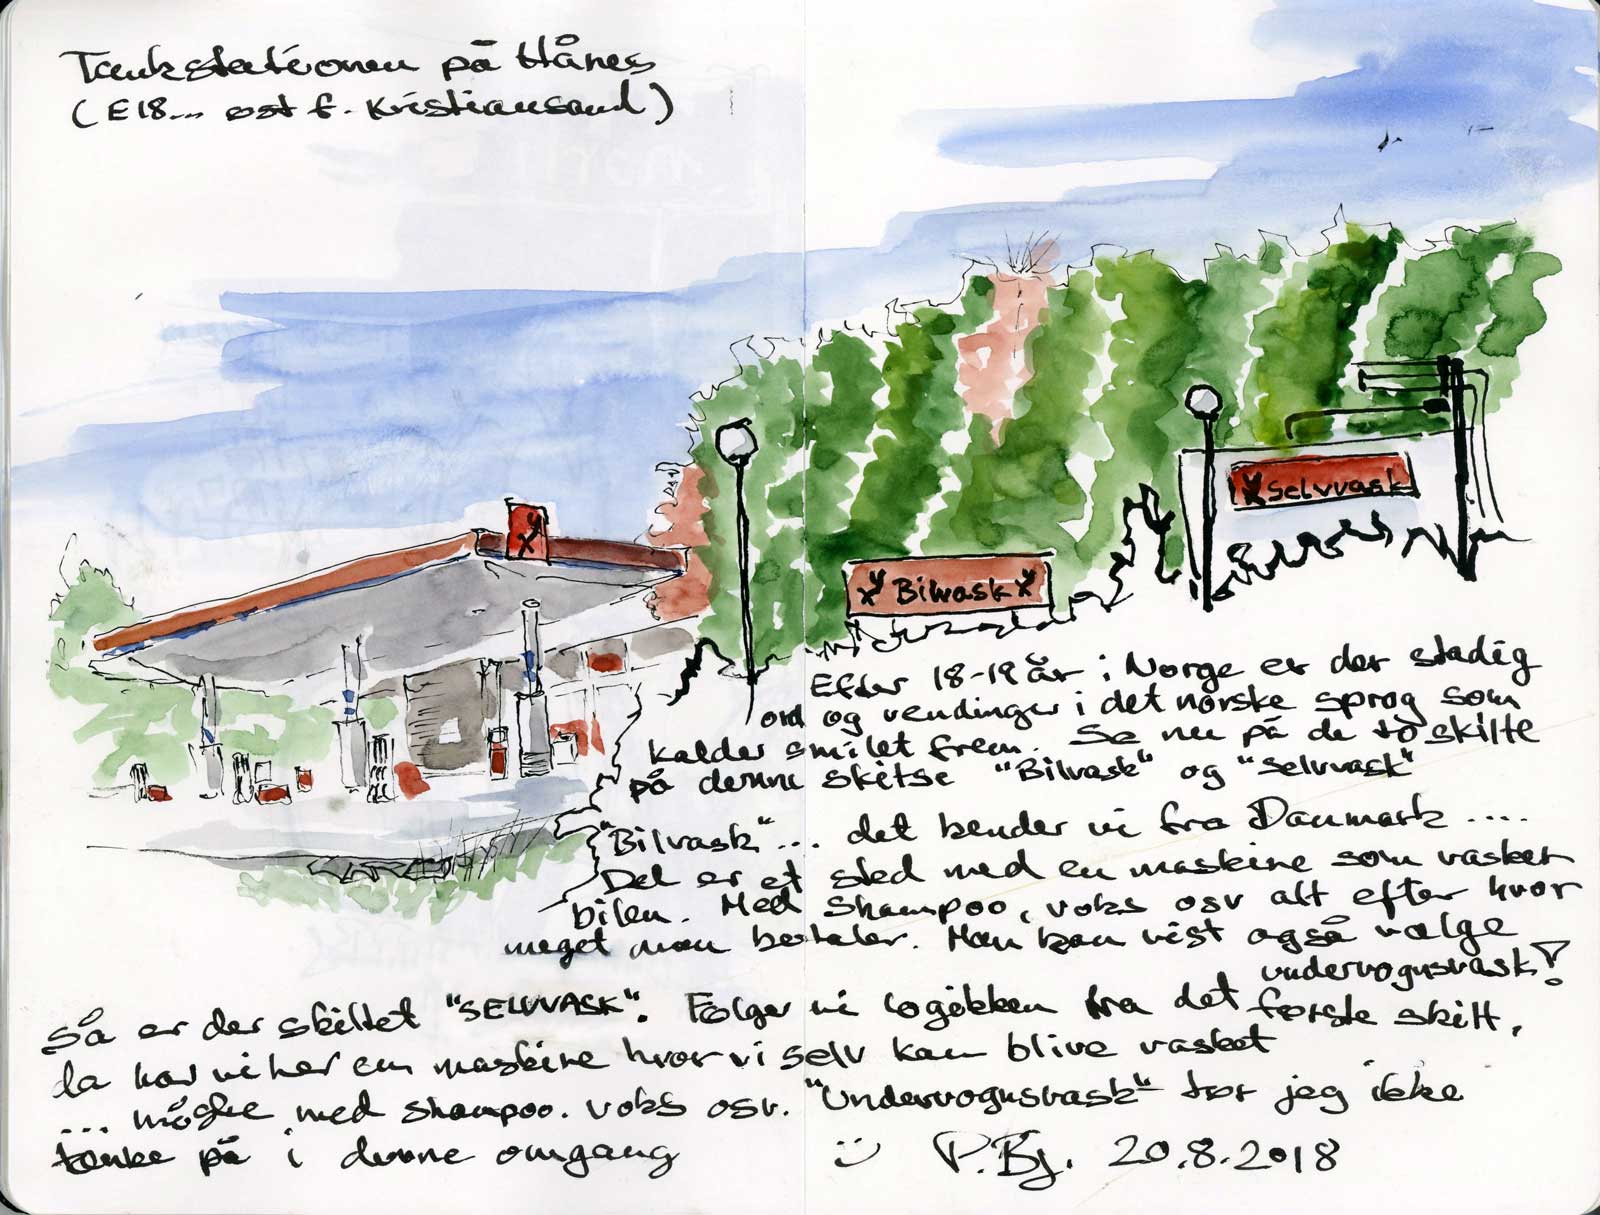 Tankstationen på Hånes
(E18... øst f. Kristiansand)
Selvvask
Bilvask
Efter 18-19 år i Norge er der stadig
ord og vendinger i det norske sprog som
kalder smilet frem. Se nu på de to skilte
på denne skitse "Bilvask" og "Selvvask"
"Bilvask"... det kender vi fra Danmark ....
Det er et sted med en maskine som vasker
bilen. Med shampoo, voks osv alt efter hvor
meget man betaler. Man kan vist også vælge
undervognsvask!
Så er der skiltet "SELVVASK". Følger vi logikken fra det første skilt,
da har vi her en maskine hvor vi selv kan blive vasket
... måske med shampoo. voks osv. "Undervognsvask" tør jeg ikke
tænke på i denne omgang
P.Bj. 20.8.2018